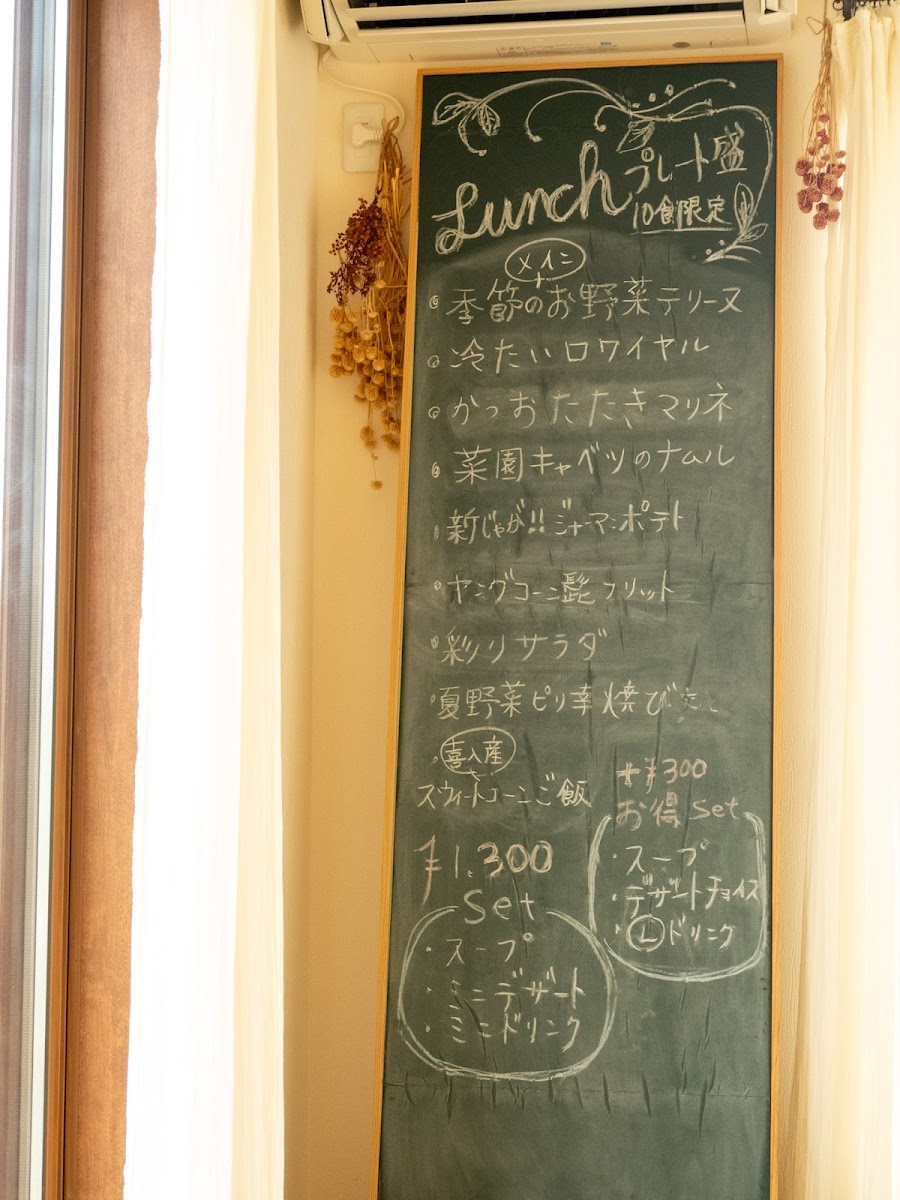 Lunch プレート盛
10食限定
メイン
+
季節のお野菜テリーヌ
冷たいロワイヤル
かつおたたきマリネ
菜園キャベツのナムル
新じゃが!! ジャーマンポテト
ヤングコーン髭フリット
彩りサラダ
夏野菜ピリ辛焼びたし
喜入産
スウィートコーンご飯
¥1,300
Set
・スープ
・ミニデザート
・ミニドリンク
+¥300
お得set
・スープ
・デザートチョイス
・Ⓛドリンク